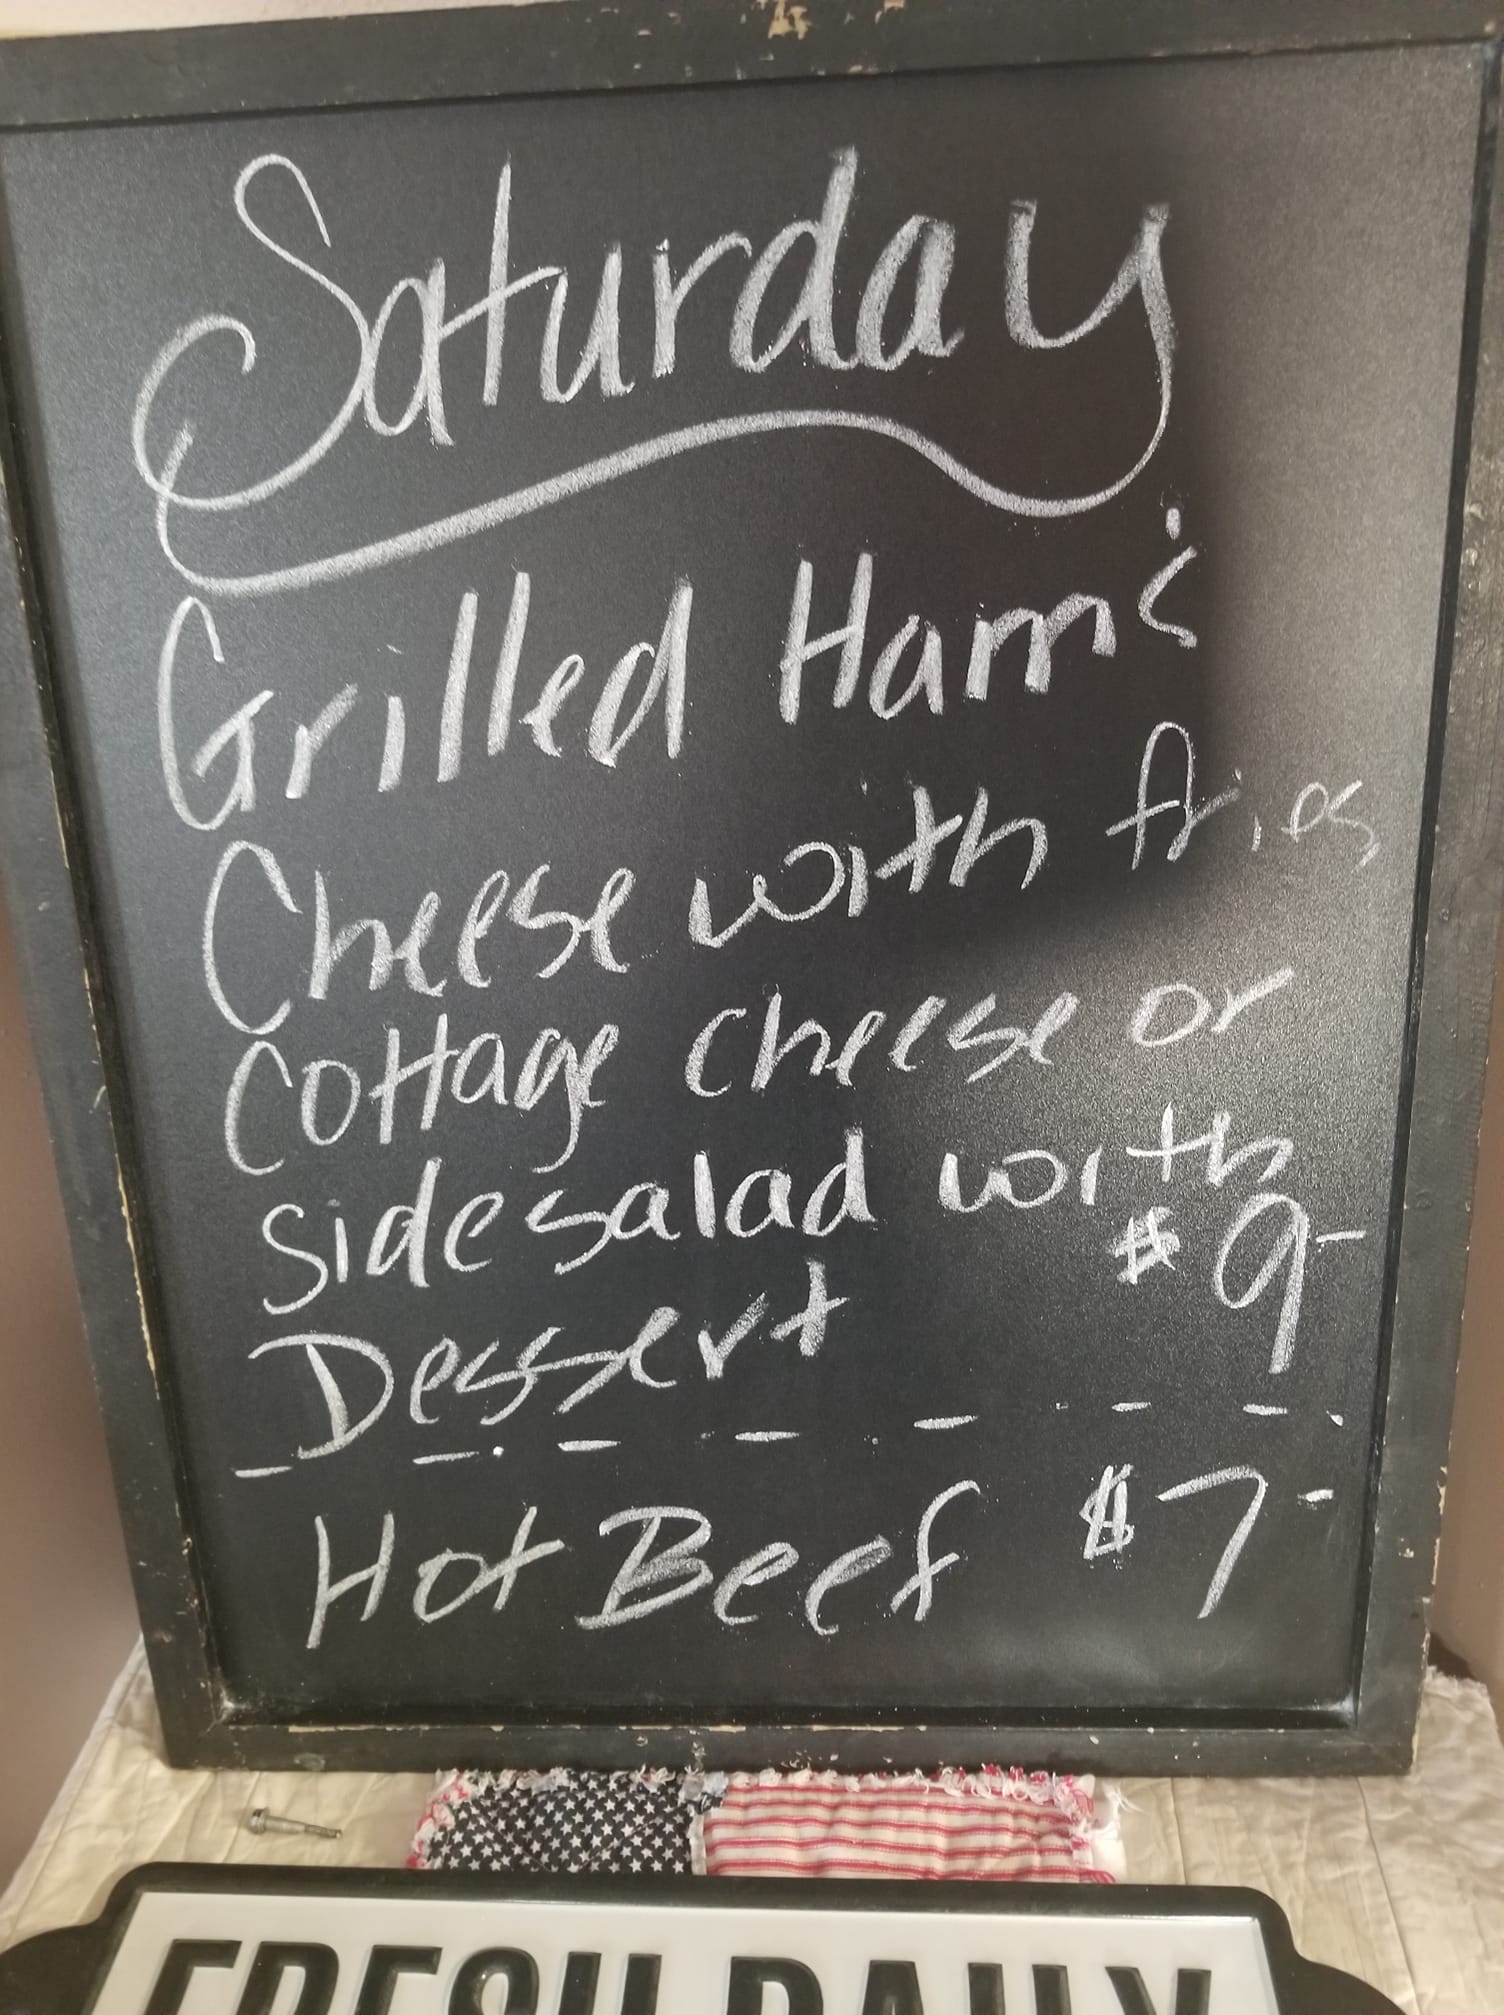 Saturday
Grilled Ham &
Cheese with fries,
Cottage cheese or
side salad with
Dessert $9-
Hot Beef $7-
FRESH DAILY